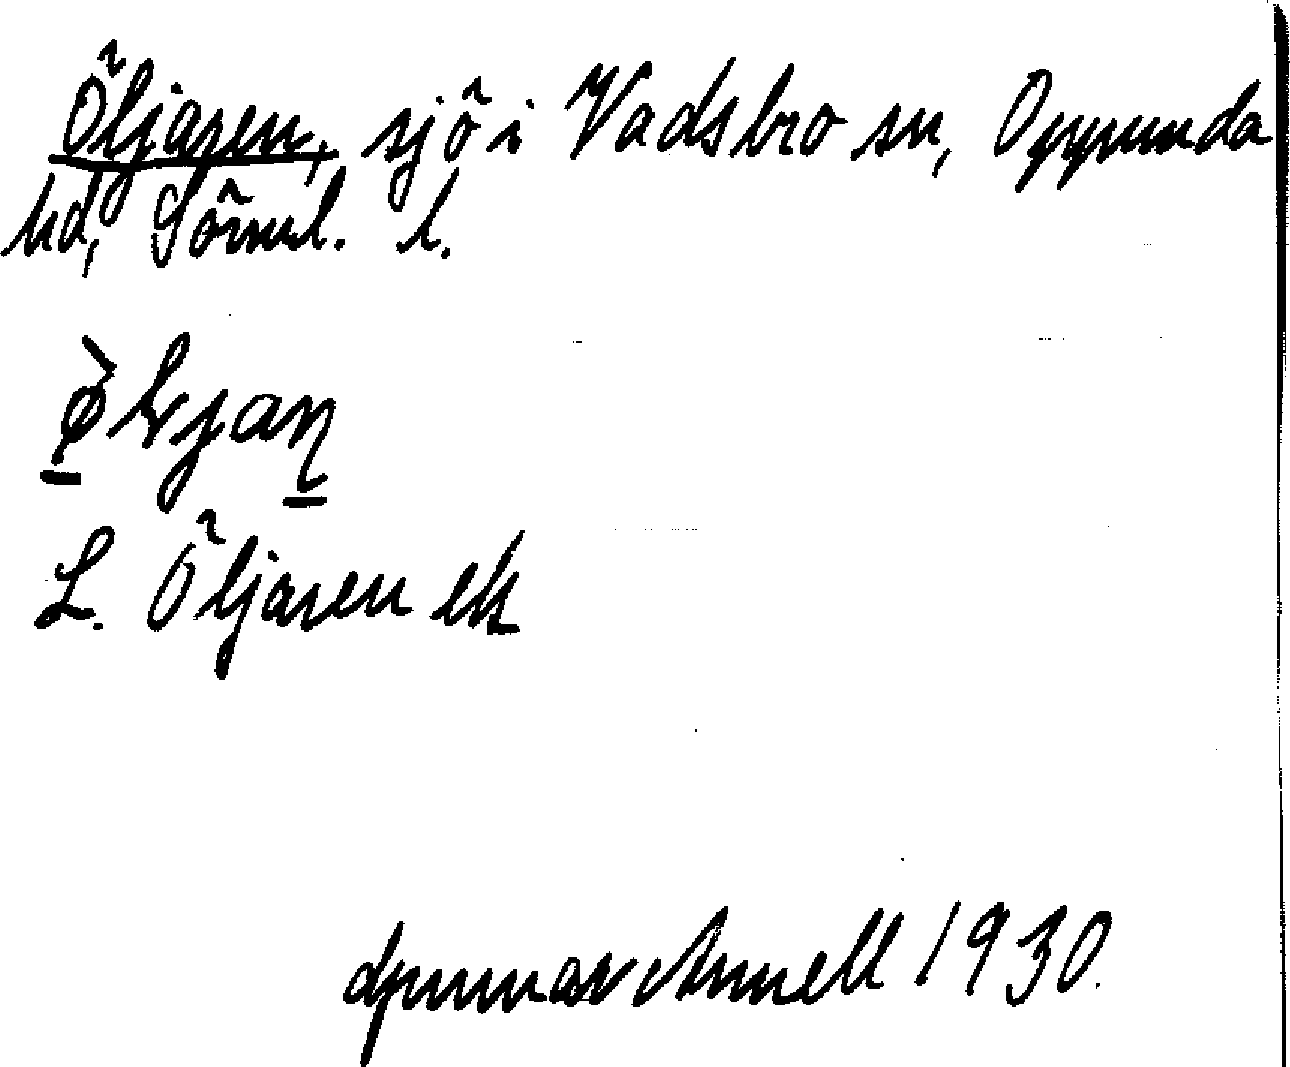 Öljaren, sjö i Vadsbro sn, Oppunda
hd, Sörml. l.
L. Öljaren ek
Gunnar Arnell 1930.